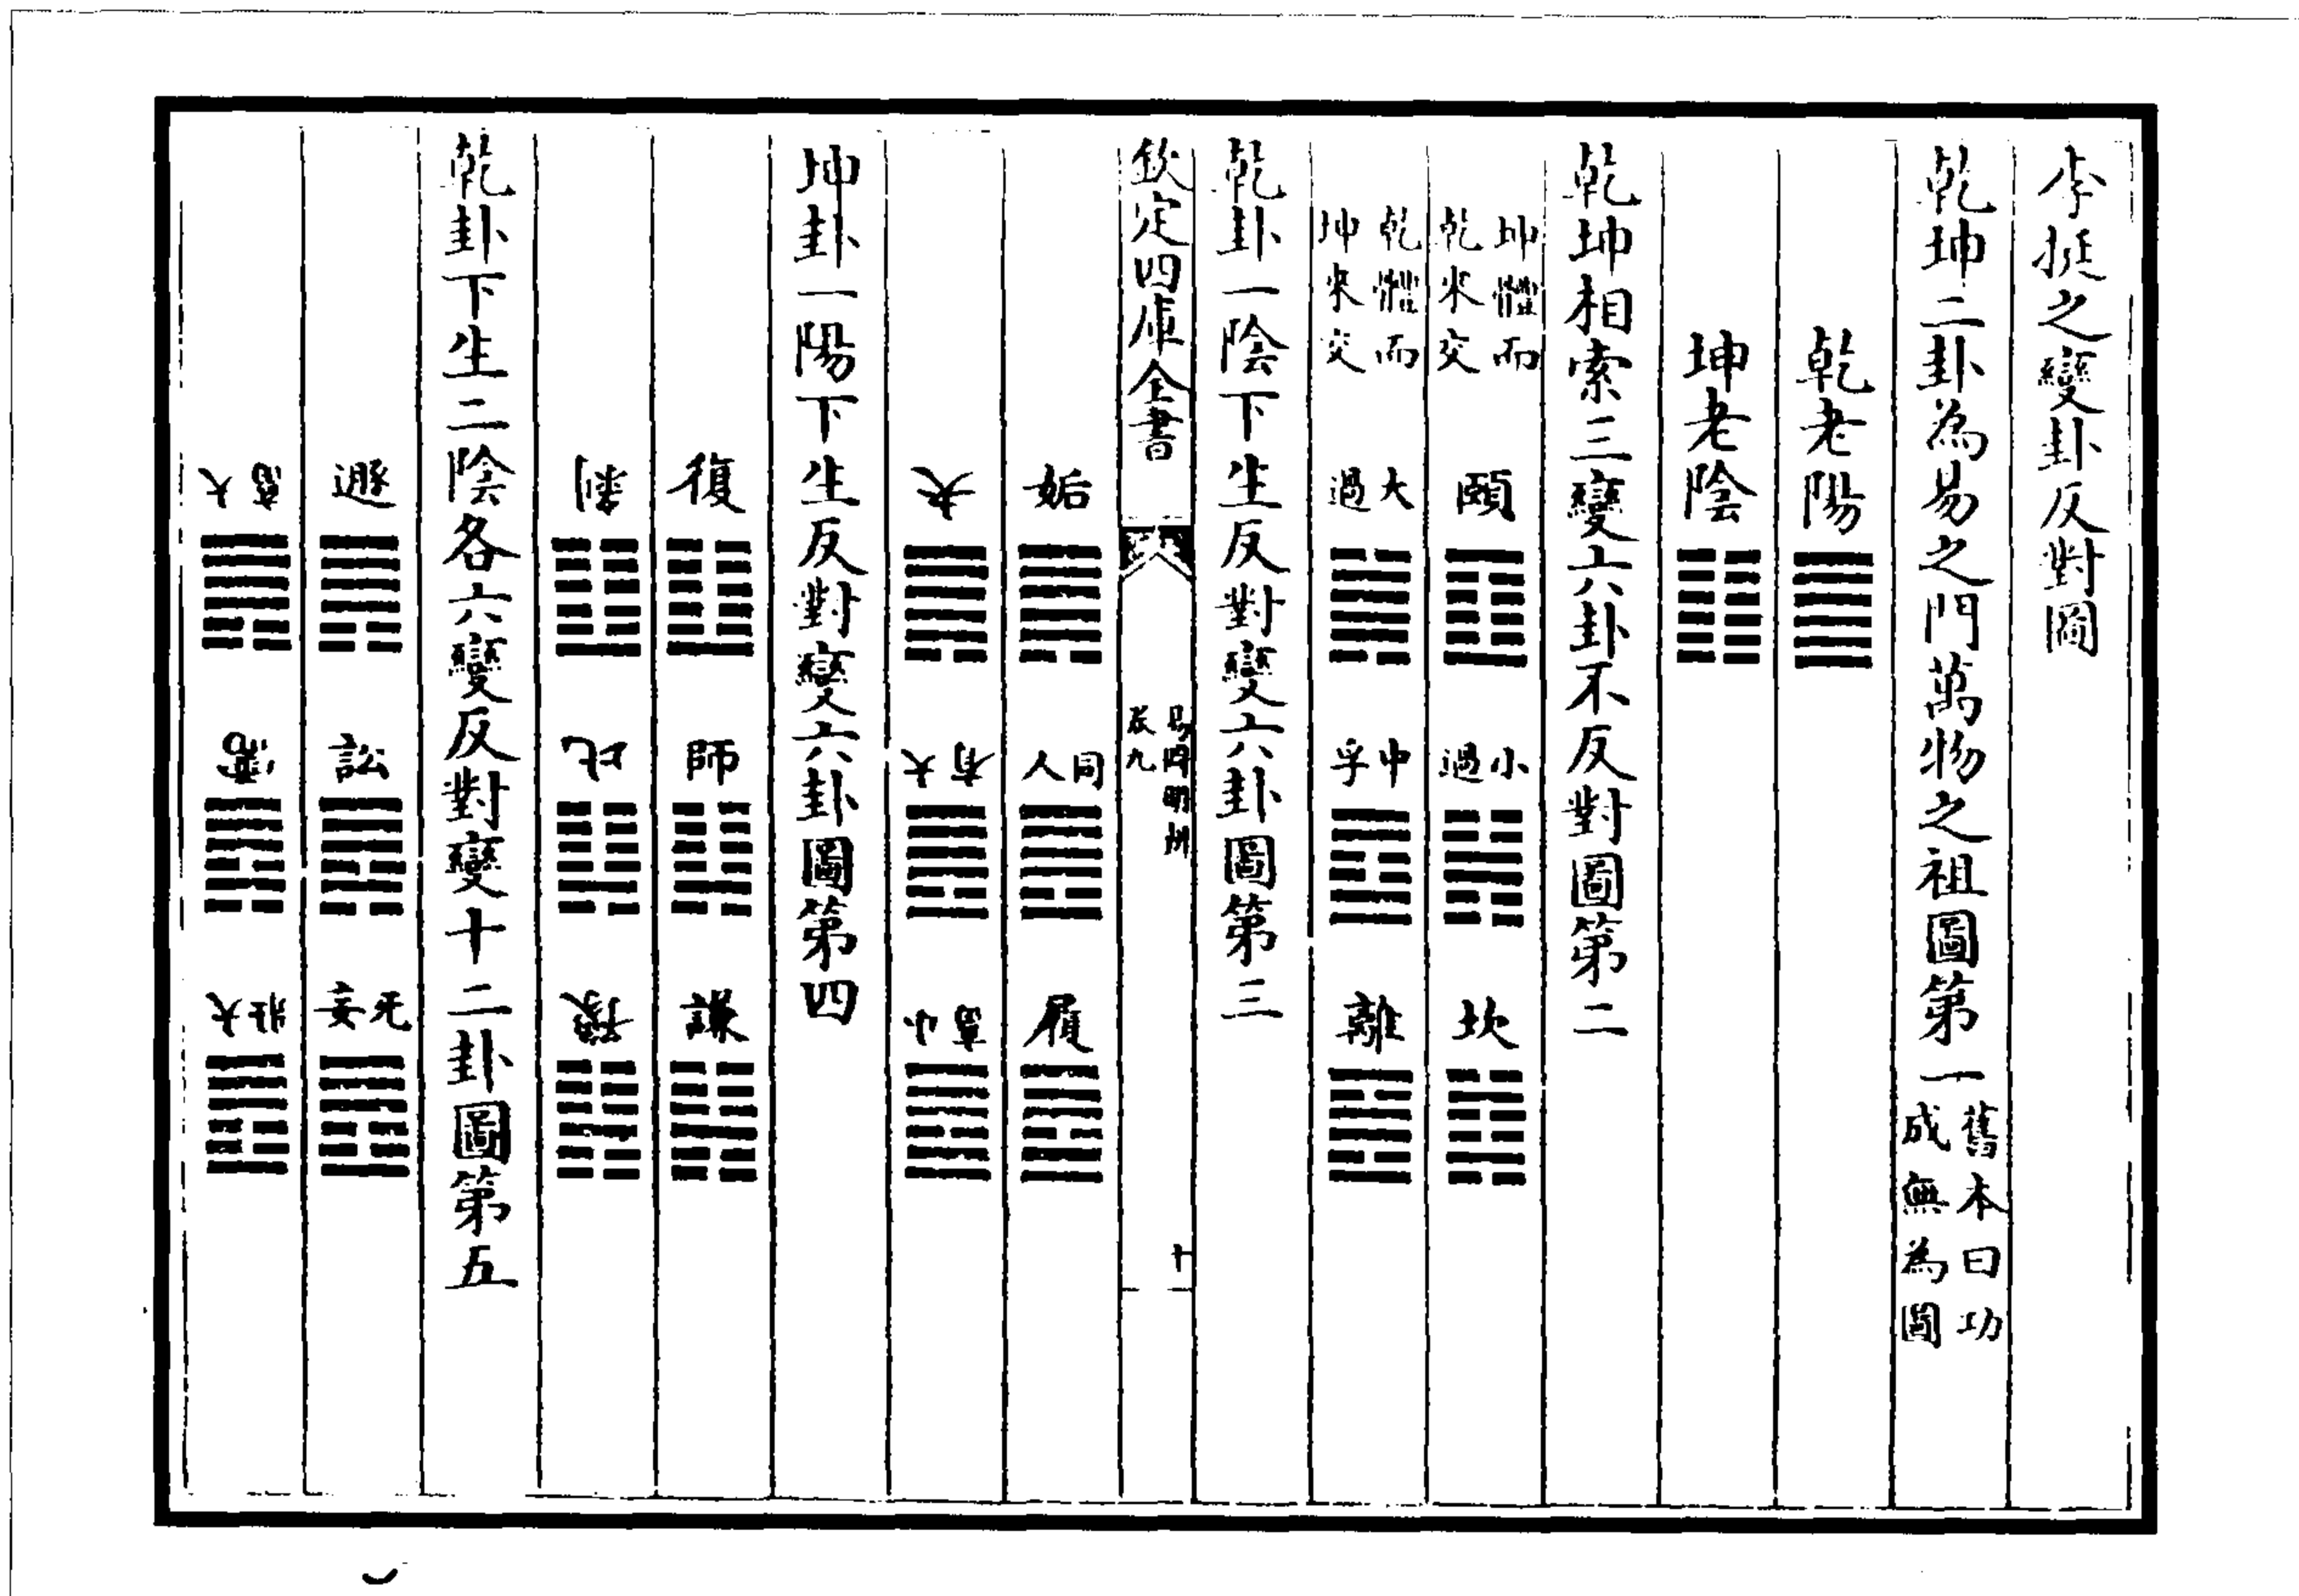 李挺之變卦反對圖
乾坤二卦為易之門萬物之祖圖第一舊本曰功成無為圖
乾老陽
坤老陰
乾坤相索三變六卦不反對圖第二
坤體而乾來交 頤 小過 坎
乾體而坤來交 大過 中孚 離
乾卦一陰下生反對變六卦圖第三
欽定四庫全書 易圖明辨卷九 十
姤 同人 履
夬 大有 小畜
坤卦一陽下生反對變六卦圖第四
復 師 謙
剝 比 豫
乾卦下生二陰各六變反對變十二卦圖第五
遯 訟 无妄
大畜 需 大壯